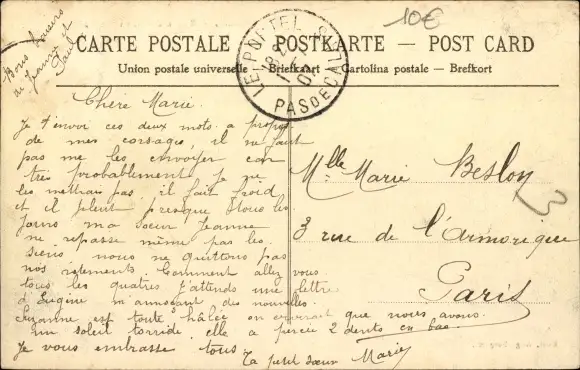 10€
Bons baisers
de Jeanne et
Paul
CARTE POSTALE — POSTKARTE — POST CARD
Union postale universelle — Briefkart — Cartolina postale — Brefkort
LE PORTEL
PAS DE CALAIS
Chère Marie.
Je t'envoi ces deux mots a propos
de mes corsages, il ne faut
pas me les envoyer car
très probablement je ne
les mettrais pas il fait froid
et il pleut presque tous les
jours ma sœur Jeanne
ne repasse même pas les
siens nous ne quittons pas
nos vêtements. Comment allez vous
tous les quatres j'attends une lettre
d'Eugène m'annonçant des nouvelles.
Suzanne est toute hâlée on croirait que nous avons
un soleil torride, elle a percée 2 dents en bas
Je vous embrasse tous.
Ta petit sœur Marie
Mlle Marie Beslon
3 rue de l'Armorique
Paris
3